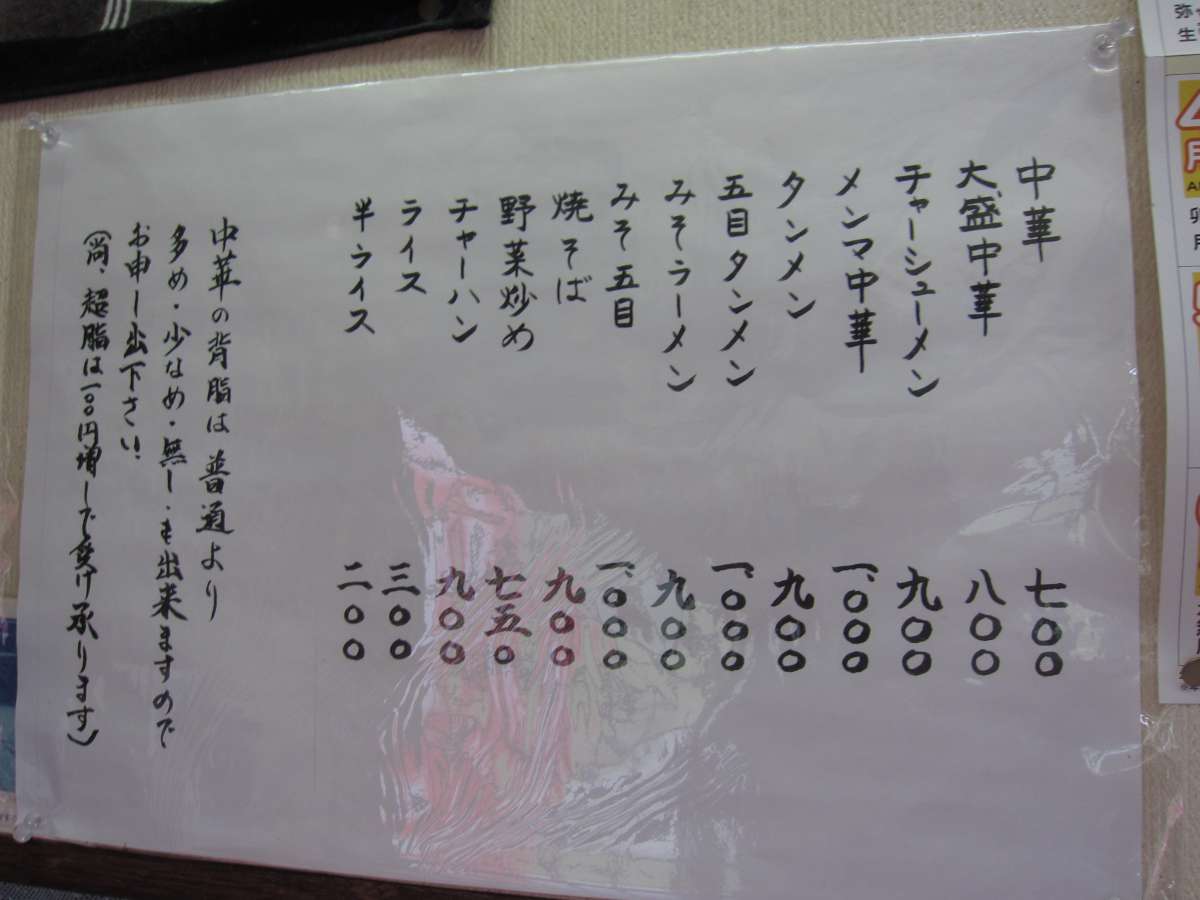 中華 七〇〇
大盛中華 八〇〇
チャーシューメン 九〇〇
メンマ中華 一、〇〇〇
タンメン 九〇〇
五目タンメン 一、〇〇〇
みそラーメン 九〇〇
みそ五目 一、〇〇〇
焼そば 九〇〇
野菜炒め 七五〇
チャーハン 九〇〇
ライス 三〇〇
半ライス 二〇〇
中華の背脂は普通より
多め・少なめ・無し・も出来ますので
お申し出下さい!
(尚、超脂は一〇〇円増しで受け承ります)